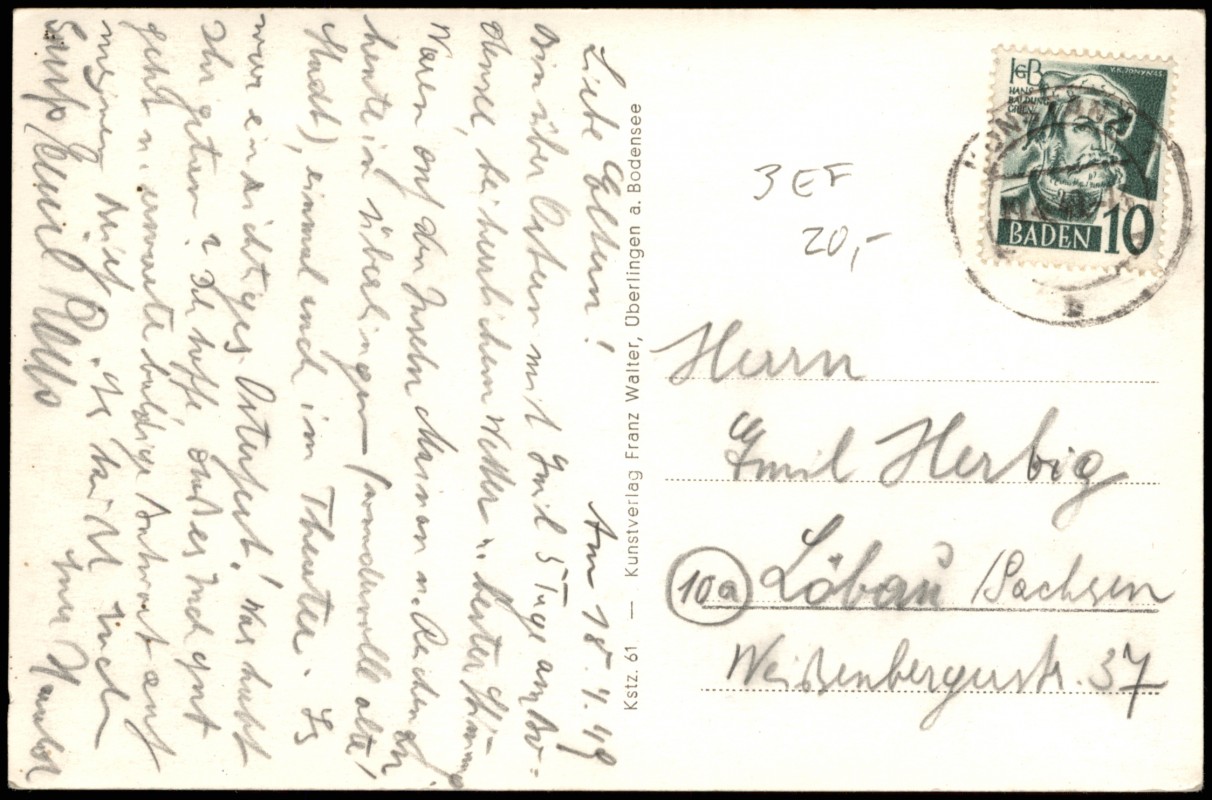 Am 18.4.49
Liebe Eltern!
Bin über Ostern mit Emil 5 Tage am Bo-
densee, bei herrlichem Wetter u. bester Stimmung
Waren auf den Inseln Mainau u. Reichenau
heute in Überlingen (wundervolle alte
Stadt), einmal auch im Theater. Es
war ein richtiges Osterfest! Was habt
Ihr getan? Ich hoffe, daß es Euch gut
geht u. erwarte baldige Antwort auf
meinen Brief. Es grüßt Euch
Euer
Emil
Kstz. 61 — Kunstverlag Franz Walter, Überlingen a. Bodensee
HANS
BALDUNG
GRIEN
V.K. JONYNAS
BADEN 10
3 EF
20,-
Herrn
Emil Herbig
10a Löbau /Sachsen
Weißenbergerstr. 37